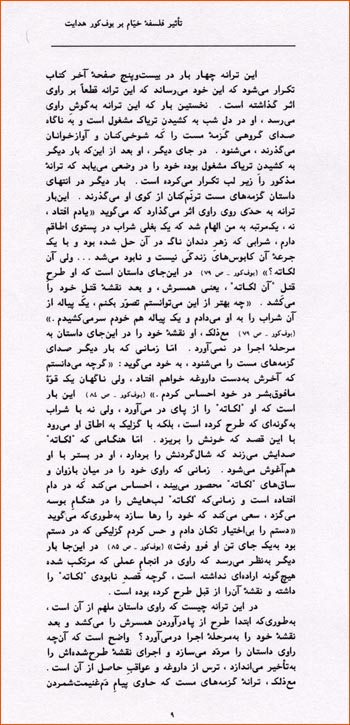 تأثیر فلسفهٔ خیّام بر بوف‌کور هدایت
این ترانه چهار بار در بیست‌وپنج صفحهٔ آخر کتاب
تکرار می‌شود که این خود می‌رساند که این ترانه قطعاً بر راوی
اثر گذاشته است . نخستین بار که این ترانه به‌گوش راوی
می‌رسد ، او در دل شب به کشیدن تریاک مشغول است و به ناگاه
صدای گروهی گزمهٔ مست را که شوخی‌کنان و آوازخوانان
می‌گذرند ، می‌شنود . در جای دیگر ، او بعد از این‌که بار دیگر
به کشیدن تریاک مشغول بوده خود را در وضعی می‌یابد که ترانهٔ
مذکور را زیر لب تکرار می‌کرده است . بار دیگر در انتهای
داستان گزمه‌های مست ترنّم‌کنان از کوی او می‌گذرند . این‌بار
ترانه به حدّی روی راوی اثر می‌گذارد که می‌گوید «یادم افتاد ،
نه ، یک‌مرتبه به من الهام شد که یک بغلی شراب در پستوی اطاقم
دارم ، شرابی که زهر دندان ناگ در آن حل شده بود و با یک
جرعهٔ آن کابوس‌های زندگی نیست و نابود می‌شد ... ولی آن
لکاته؟» (بوف‌کور - ص ۷۹) در این‌جای داستان است که او طرح
قتل "آن لکاته" ، یعنی همسرش ، و بعد نقشهٔ قتل خود را
می‌کشد . «چه بهتر از این می‌توانستم تصوّر بکنم ، یک پیاله از
آن شراب را به او می‌دادم و یک پیاله هم خودم سرمی‌کشیدم .»
(بوف‌کور - ص ۷۹) مع‌ذلک ، او نقشهٔ خود را در این‌جای داستان به
مرحلهٔ اجرا در نمی‌آورد . امّا زمانی که بار دیگر صدای
گزمه‌های مست را می‌شنود ، به خود می‌گوید : «گرچه می‌دانستم
که آخرش به‌دست داروغه خواهم افتاد ، ولی ناگهان یک قوّهٔ
مافوق‌بشر در خود احساس کردم .» (بوف‌کور - ص ۸۴) این بار
است که او "لکاته" را از پای در می‌آورد ، ولی نه با شراب
به‌گونه‌ای که طرح کرده است ، بلکه با گزلیک به اطاق او می‌رود
با این قصد که خونش را بریزد . امّا هنگامی که "لکاته"
صدایش می‌زند که شال‌گردنش را بردارد ، او در بستر با او
هم‌آغوش می‌شود . زمانی‌که راوی خود را در میان بازوان و
ساق‌های "لکاته" محصور می‌بیند ، احساس می‌کند که در دام
افتاده است و زمانی‌که "لکاته" لب‌هایش را در هنگام بوسه
می‌گزد ، سعی می‌کند که خود را رها سازد به‌طوری‌که می‌گوید
«دستم را بی‌اختیار تکان دادم و حس کردم گزلیکی که در دستم
بود به‌یک جای تن او فرو رفت» (بوف‌کور - ص ۸۵) در این‌جا بار
دیگر به‌نظر می‌رسد که راوی در انجام عملی که مرتکب شده
هیچ‌گونه اراده‌ای نداشته است ، گرچه قصد نابودی "لکاته" را
داشته و نقشهٔ آن‌را از قبل طرح کرده بوده است .
در این ترانه چیست که راوی داستان ملهم از آن است ،
به‌طوری‌که ابتدا طرح از پادرآوردن همسرش را می‌کشد و بعد
نقشهٔ خود را به‌مرحلهٔ اجرا درمی‌آورد؟ واضح است که آن‌چه
راوی داستان را مردّد می‌سازد و اجرای نقشهٔ طرح‌شده‌اش را
به‌تأخیر می‌اندازد ، ترس از داروغه و عواقب حاصل از آن است .
مع‌ذلک ، ترانهٔ گزمه‌های مست که حاوی پیام دَم‌غنیمت‌شمردن
۹